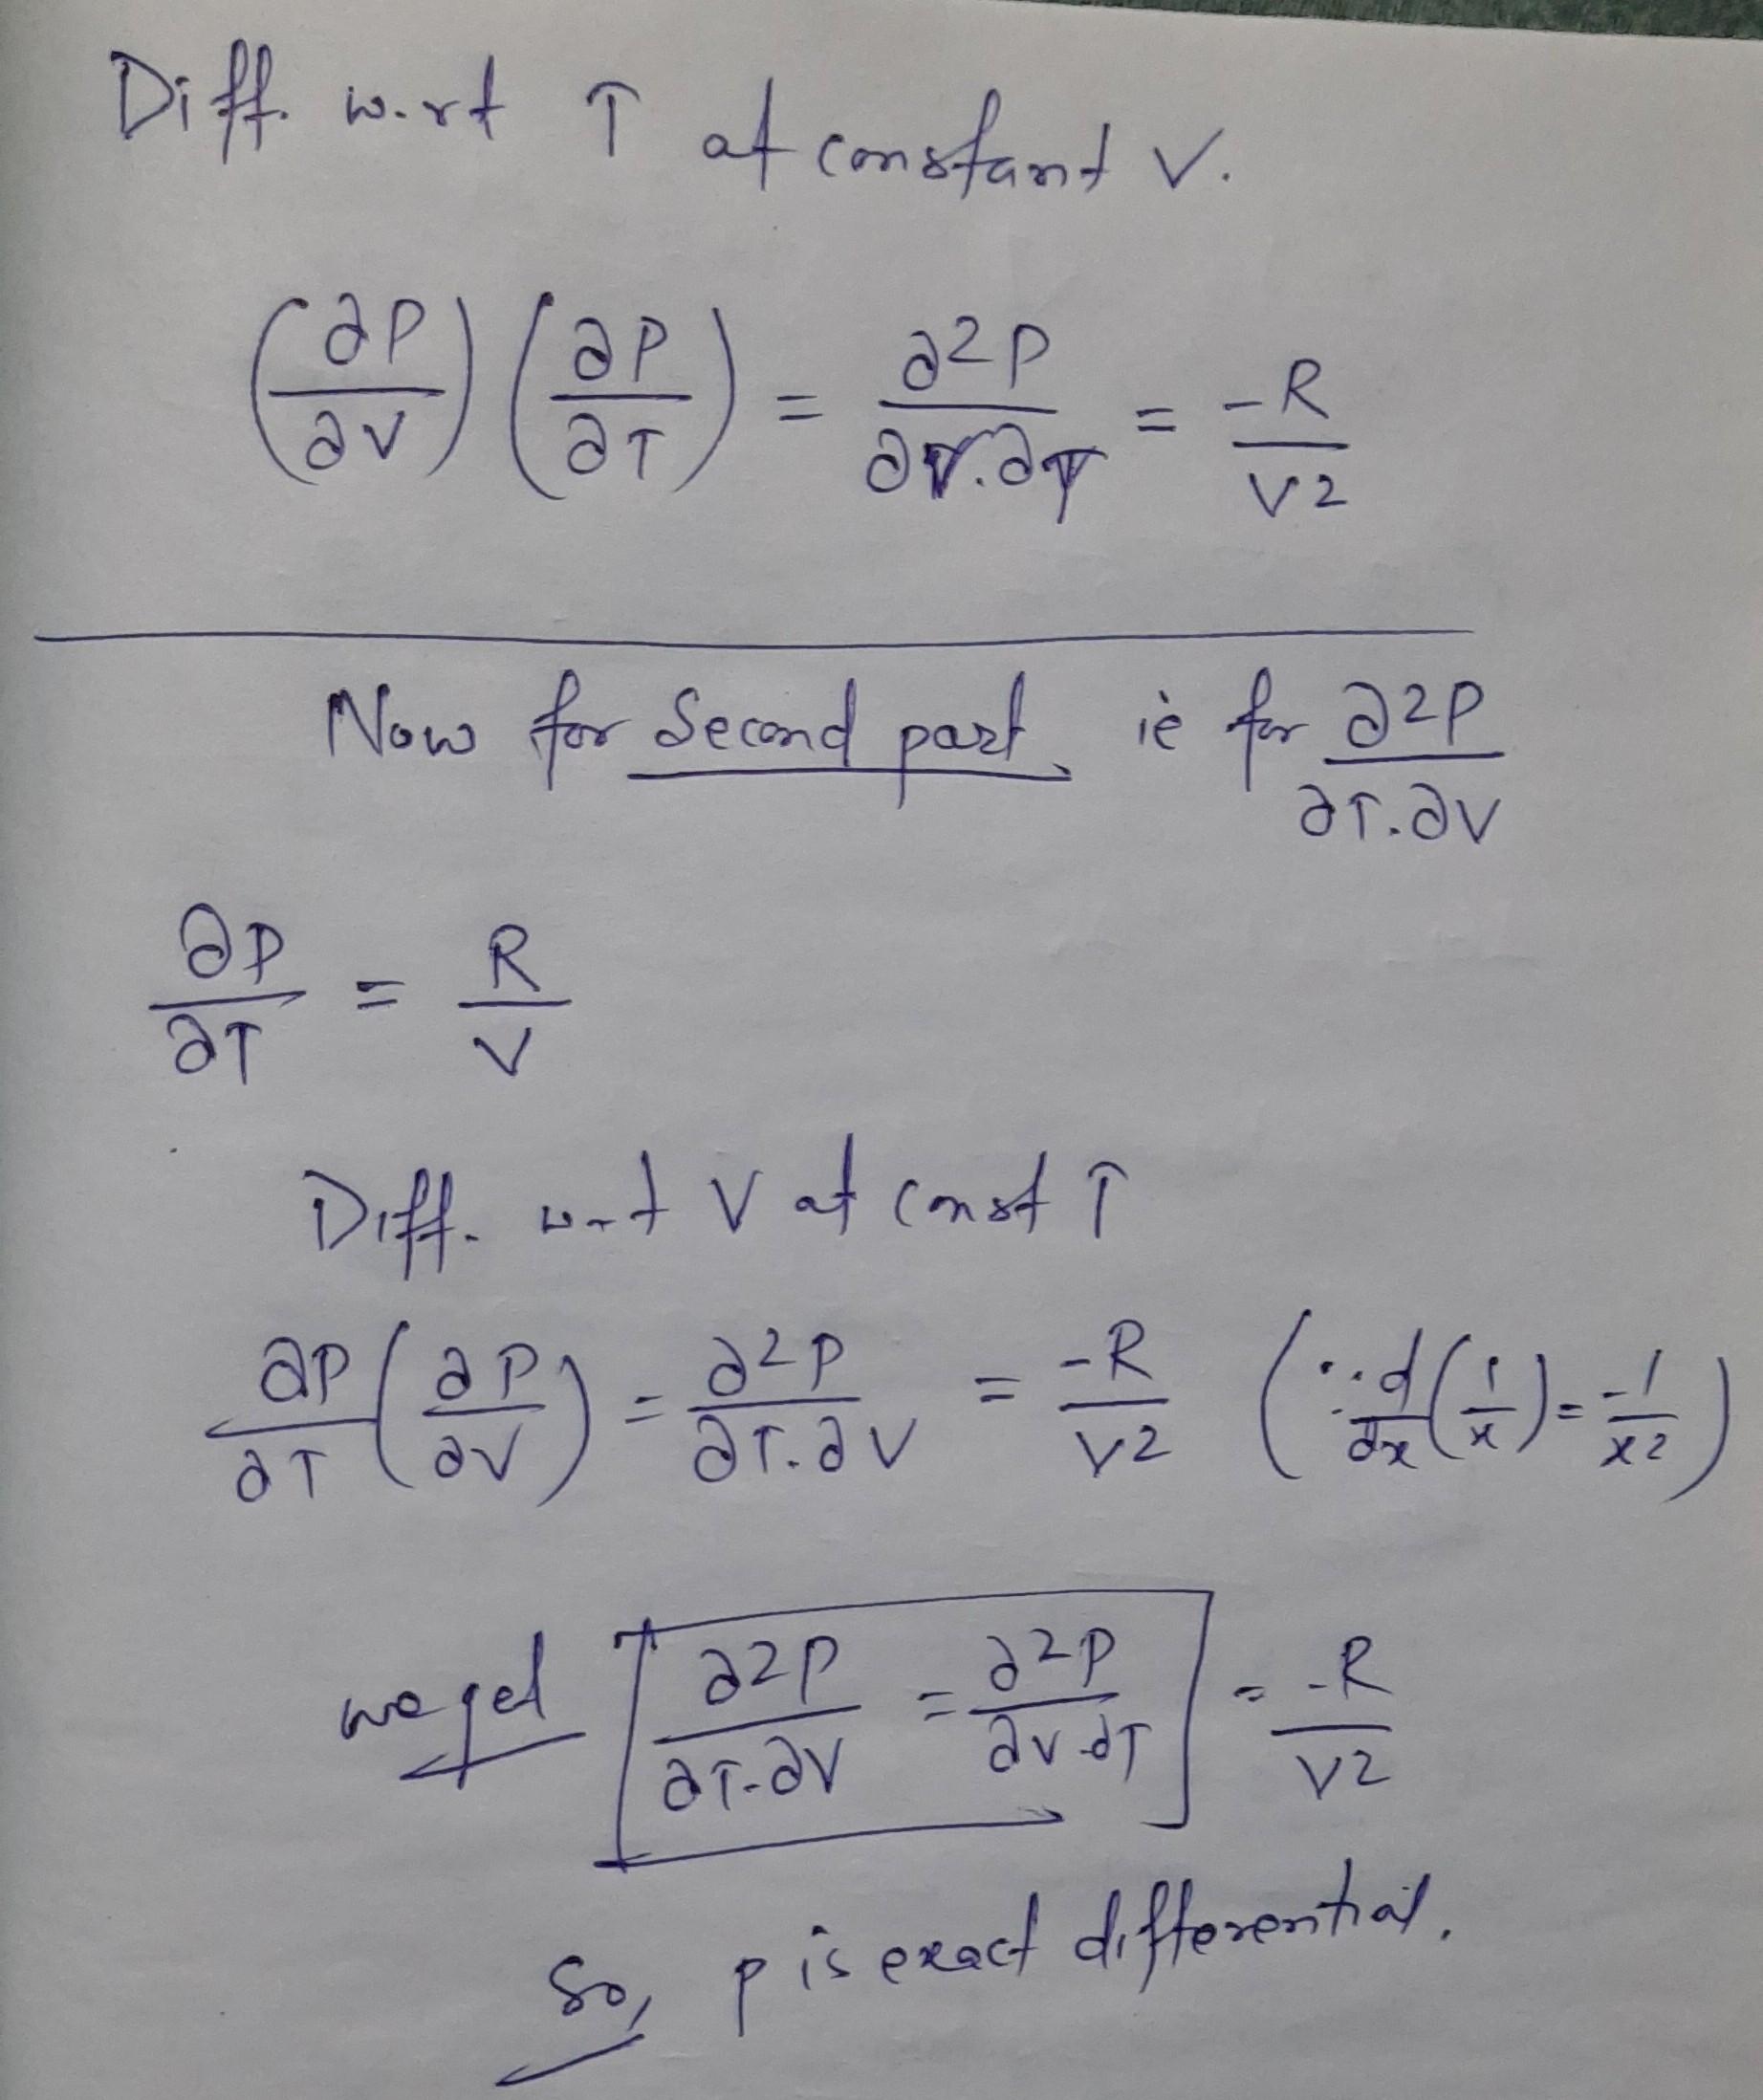 Diff. w.r.t T at constant V.
(∂P/∂V) (∂P/∂T) = ∂2P/∂V.∂T = -R/V2
Now for Second part, ie for ∂2P/∂T.∂V
∂P/∂T = R/V
Diff. w.r.t V at const T
∂P/∂T (∂P/∂V) = ∂2P/∂T.∂V = -R/V2 (∵ d/dx (1/x) = -1/x2)
we get [∂2P/∂T.∂V = ∂2P/∂V.∂T] = -R/V2
So, p is exact differential.